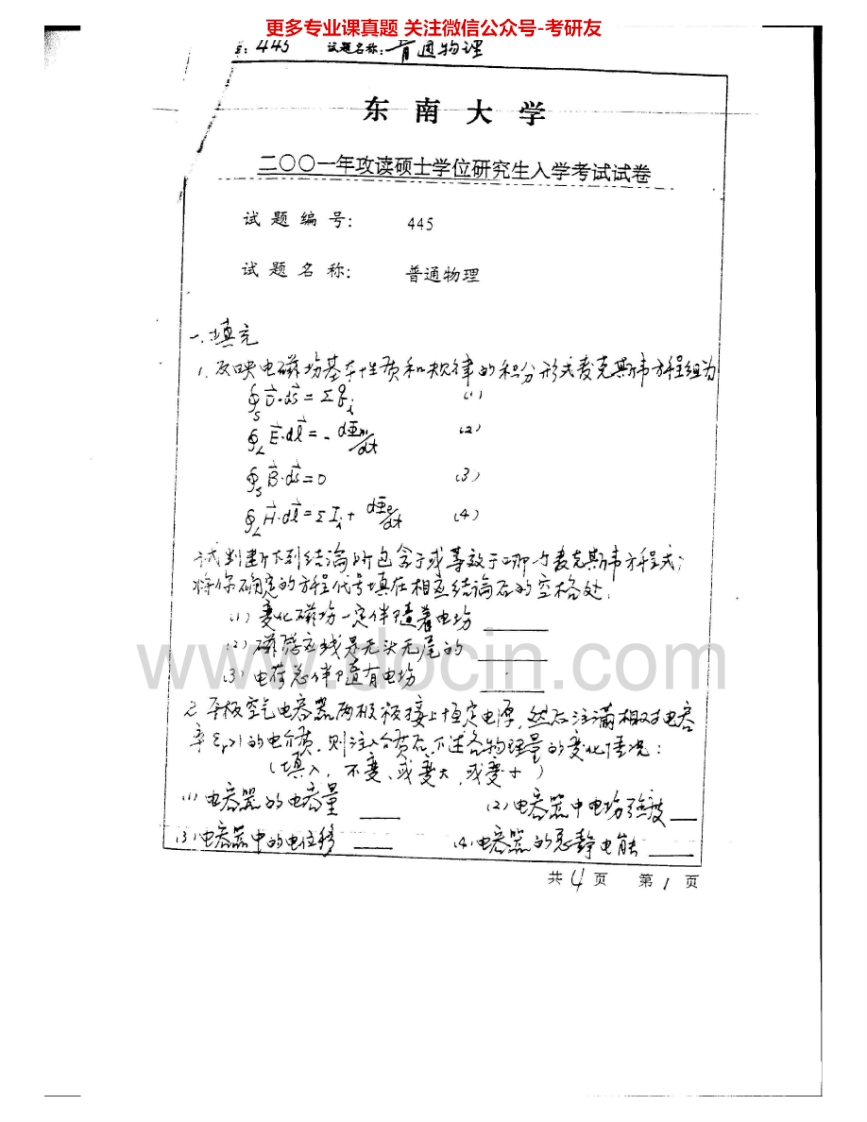 更多专业课真题 关注微信公众号-考研友
号: 445 试题名称: 普通物理
东 南 大 学
二〇〇一年攻读硕士学位研究生入学考试试卷
试 题 编 号: 445
试 题 名 称: 普通物理
一.填充
1. 反映电磁场基本性质和规律的积分形式麦克斯韦方程组为
∮_S D⃗·dS⃗ = Σq_i (1)
∮_L E⃗·dl⃗ = - dΦ_m/dt (2)
∮_S B⃗·dS⃗ = 0 (3)
∮_L H⃗·dl⃗ = ΣI_i + dΦ_e/dt (4)
试判断下列结论所包含于或等效于哪个麦克斯韦方程式;
将你确定的方程代号填在相应结论后的空格处.
(1) 变化磁场一定伴随着电场 ____
(2) 磁感应线是无头无尾的 ____
(3) 电荷总伴随有电场 ____
www.docin.com
2. 平板空气电容器两极板接上恒定电源, 然后注满相对电容
率 εr>1 的电介质, 则注入介质后, 下述各物理量的变化情况:
(填入, 不变, 或变大, 或变小)
(1) 电容器的电容量 ____ (2) 电容器中电场强度 ____
(3) 电容器中的电位移 ____ (4) 电容器的总静电能 ____
共 4 页 第 1 页